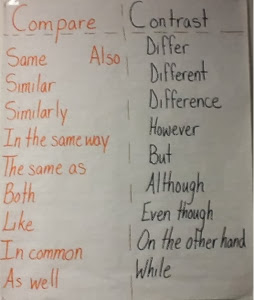 Compare
Same Also
Similar
Similarly
In the same way
The same as
Both
Like
In common
As well
Contrast
Differ
Different
Difference
However
But
Although
Even though
On the other hand
While